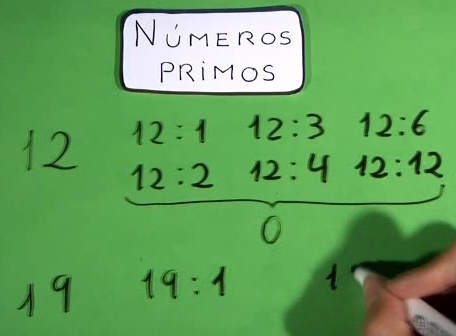 NÚMEROS
PRIMOS
12 12:1 12:3 12:6
12:2 12:4 12:12
0
19 19:1 1